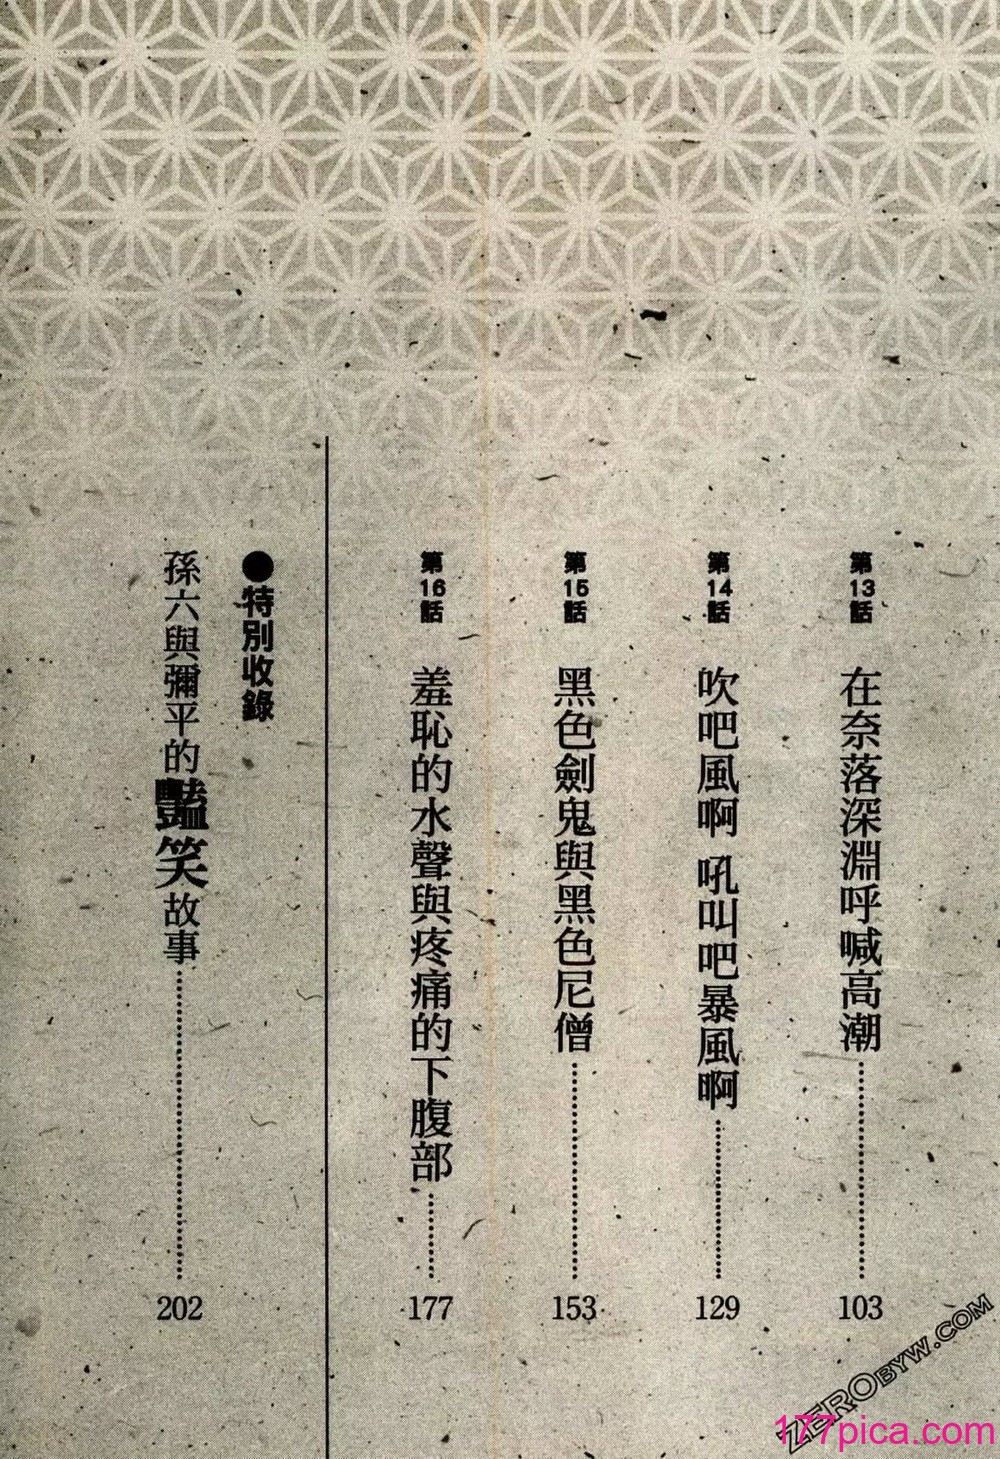 第13話 在奈落深淵呼喊高潮 103
第14話 吹吧風啊 吼叫吧暴風啊 129
第15話 黑色劍鬼與黑色尼僧 153
第16話 羞恥的水聲與疼痛的下腹部 177
●特別收錄
孫六與彌平的豔笑故事 202
ZEROBYW.COM
177pica.com